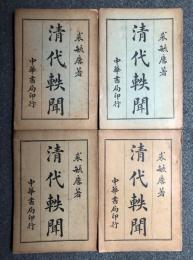 裘毓麐著
清代軼聞
中華書局印行
裘毓麐著
清代軼聞
中華書局印行
裘毓麐著
清代軼聞
中華書局印行
裘毓麐著
清代軼聞
中華書局印行